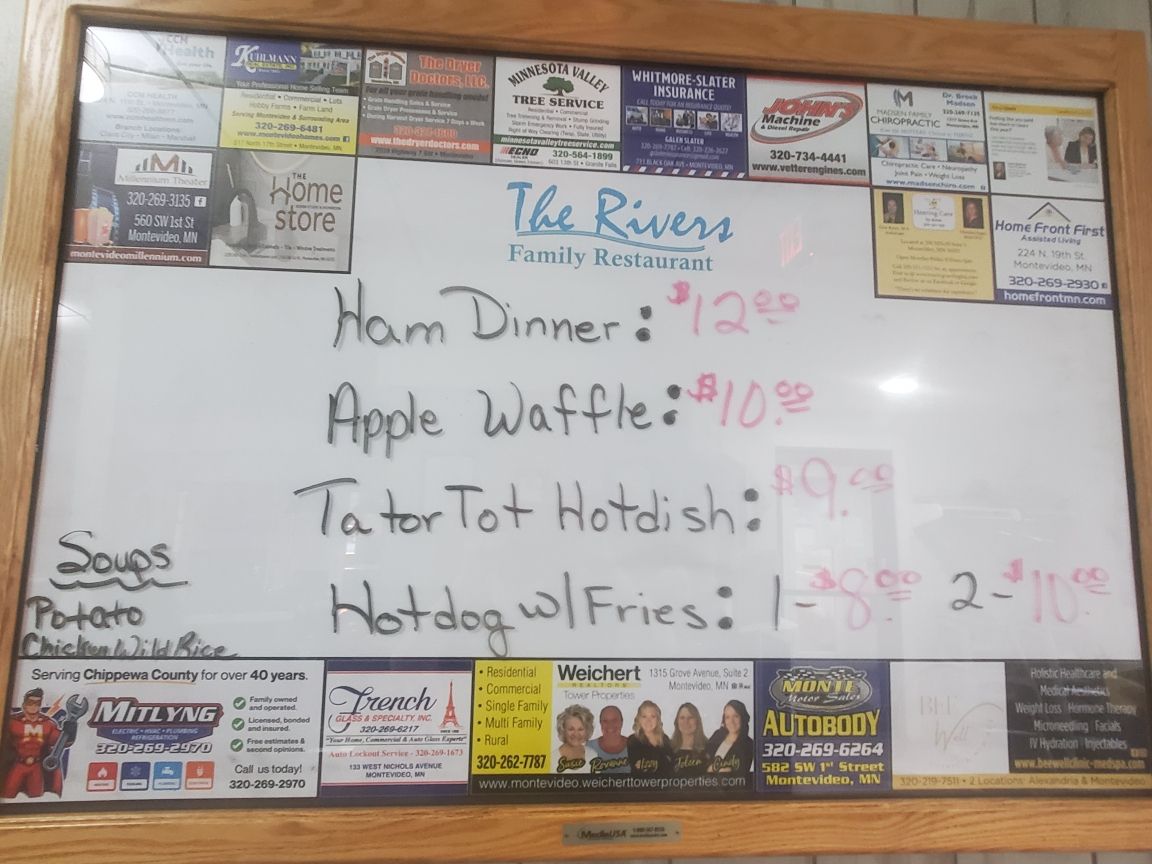 CCM Health
KUHLMANN
REAL ESTATE, INC.
Your Professional Home Selling Team
Residential • Commercial • Lots
Hobby Farms • Farm Land
Serving Montevideo & Surrounding Area
320-269-6481
www.montevideohomes.com
517 North 17th Street • Montevideo, MN
The Dryer
Doctors, LLC.
For all your grain handling needs!
• Grain Handling Sales & Service
• Grain Dryer Preseason & Service
• During Harvest Dryer Service 7 Days a Week
www.thedryerdoctors.com
MINNESOTA VALLEY
TREE SERVICE
Residential • Commercial
Tree Trimming & Removal • Stump Grinding
Storm Emergency Work • Fully Insured
Right of Way Clearing (Twsp, State, Utility)
minnesotavalleytreeservice.com
ECHO
320-564-1899
WHITMORE-SLATER
INSURANCE
CALL TODAY FOR AN INSURANCE QUOTE!
GALEN SLATER
731 BLACK OAK AVE • MONTEVIDEO, MN
JOHN'S
Machine
& Diesel Repair
320-734-4441
www.vetterengines.com
MADSEN FAMILY
CHIROPRACTIC
Dr. Brock
Madsen
320-269-7135
Chiropractic Care • Neuropathy
Joint Pain • Weight Loss
www.madsenchiro.com
Millennium Theater
320-269-3135
560 SW 1st St
Montevideo, MN
montevideomillennium.com
THE
Home
store
Hearing Care
Home Front First
Assisted Living
224 N. 19th St.
Montevideo, MN
320-269-2930
homefrontmn.com
The Rivers
Family Restaurant
Ham Dinner: $12.00
Apple Waffle: $10.00
Tator Tot Hotdish: $9.00
Hotdog w/ Fries: 1-$8.00 2-$10.00
Soups
Potato
Chicken Wild Rice
Serving Chippewa County for over 40 years.
MITLYNG
ELECTRIC • HVAC • PLUMBING
REFRIGERATION
320-269-2970
Family owned
and operated.
Licensed, bonded
and insured.
Free estimates &
second opinions.
Call us today!
320-269-2970
French
GLASS & SPECIALTY, INC.
320-269-6217
"Your Home, Commercial & Auto Glass Experts"
Auto Lockout Service - 320-269-1673
133 WEST NICHOLS AVENUE
MONTEVIDEO, MN
• Residential
• Commercial
• Single Family
• Multi Family
• Rural
320-262-7787
Weichert
REALTORS
Tower Properties
1315 Grove Avenue, Suite 2
Montevideo, MN
Susie Roxanne Missy Joleen Cindy
www.montevideo.weicherttowerproperties.com
MONTE
Motor Sales
AUTOBODY
320-269-6264
582 SW 1st Street
Montevideo, MN
BEE
Well
Holistic Healthcare and
Medical Aesthetics
Weight Loss Hormone Therapy
Microneedling Facials
IV Hydration Injectables
www.beewellclinic-medspa.com
320-219-7511 • 2 Locations: Alexandria & Montevideo
MediaUSA